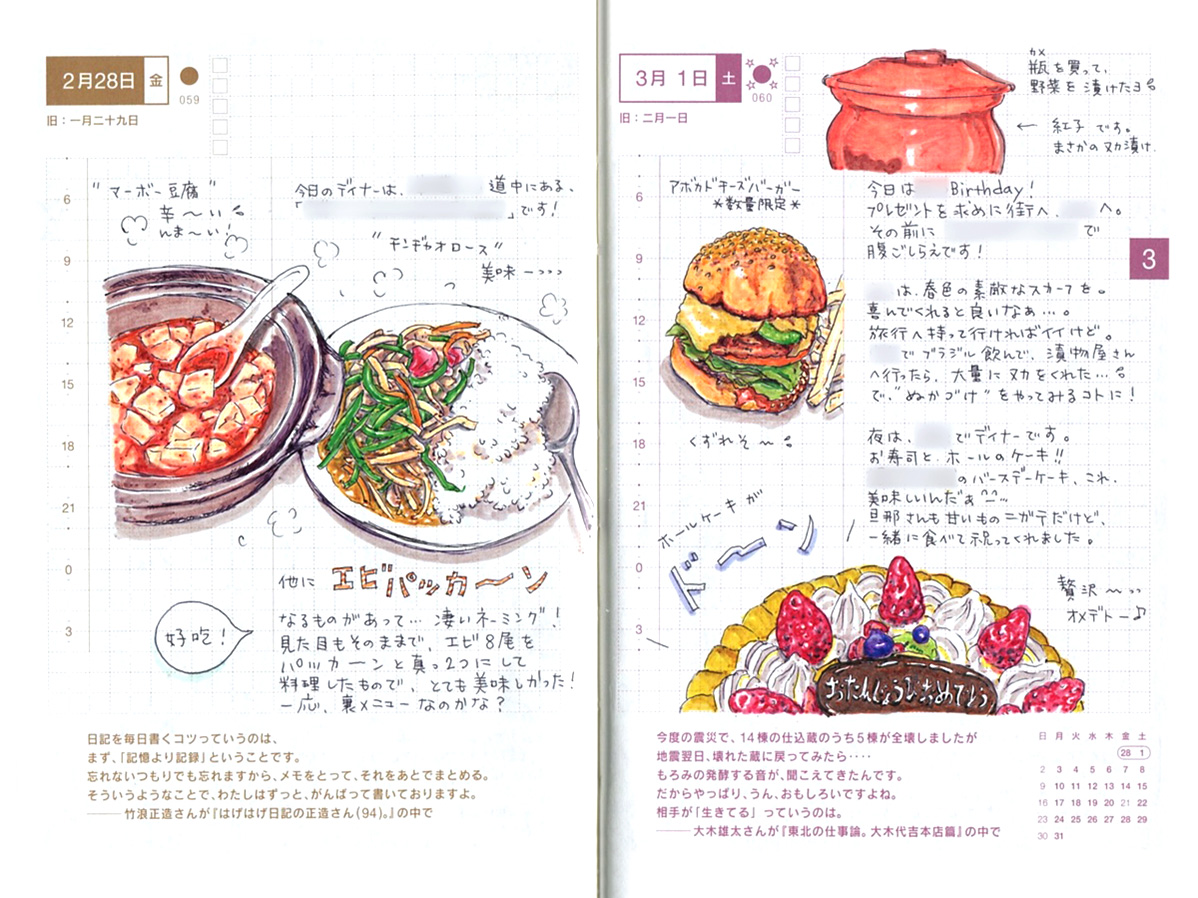 2月28日 金
059
旧：一月二十九日
"マーボー豆腐"
辛〜い
んま〜い！
今日のディナーは、 道中にある、
「 」です！
"チンヂャオロース"
美味ーっっっ
6
9
12
15
18
21
0
3
他に エビパッカ〜ン
なるものがあって… 凄いネーミング！
見た目もそのままで、エビ8尾を
パッカ〜ンと真っ2つにして
料理したもので、とても美味しかった！
一応、裏メニューなのかな？
好吃！
日記を毎日書くコツっていうのは、
まず、「記憶より記録」ということです。
忘れないつもりでも忘れますから、メモをとって、それをあとでまとめる。
そういうようなことで、わたしはずっと、がんばって書いておりますよ。
――竹浪正造さんが『はげはげ日記の正造さん（94）。』の中で
3月 1日 土
060
旧：二月一日
瓶を買って、
か
野菜を漬けたヨ
← 紅子です。
まさかのヌカ漬け.
アボカドチーズバーガー
＊数量限定＊
今日は Birthday！
プレゼントを求めに街へ、 へ。
その前に で
腹ごしらえです！
は、春色の素敵なスカーフを。
喜んでくれると良いなぁ…。
旅行へ持って行ければイイけど。
でブラジル飲んで、漬物屋さん
へ行ったら、大量にヌカをくれた…
で、"ぬかづけ"をやってみるコトに！
6
9
12
15
18
21
0
3
3
くずれそ〜
夜は、 でディナーです。
お寿司と、ホールのケーキ!!
のバースデーケーキ、これ、
美味しいんだぁ^^…
旦那さんも甘いものニガテだけど、
一緒に食べて祝ってくれました。
ホールケーキが
ドーン
贅沢〜っっ
オメデトー♪
おたんじょうびおめでとう
今度の震災で、14棟の仕込蔵のうち5棟が全壊しましたが
地震翌日、壊れた蔵に戻ってみたら‥‥
もろみの発酵する音が、聞こえてきたんです。
だからやっぱり、うん、おもしろいですよね。
相手が「生きてる」っていうのは。
――大木雄太さんが『東北の仕事論。大木代吉本店篇』の中で
日 月 火 水 木 金 土
28 1
2 3 4 5 6 7 8
9 10 11 12 13 14 15
16 17 18 19 20 21 22
23 24 25 26 27 28 29
30 31